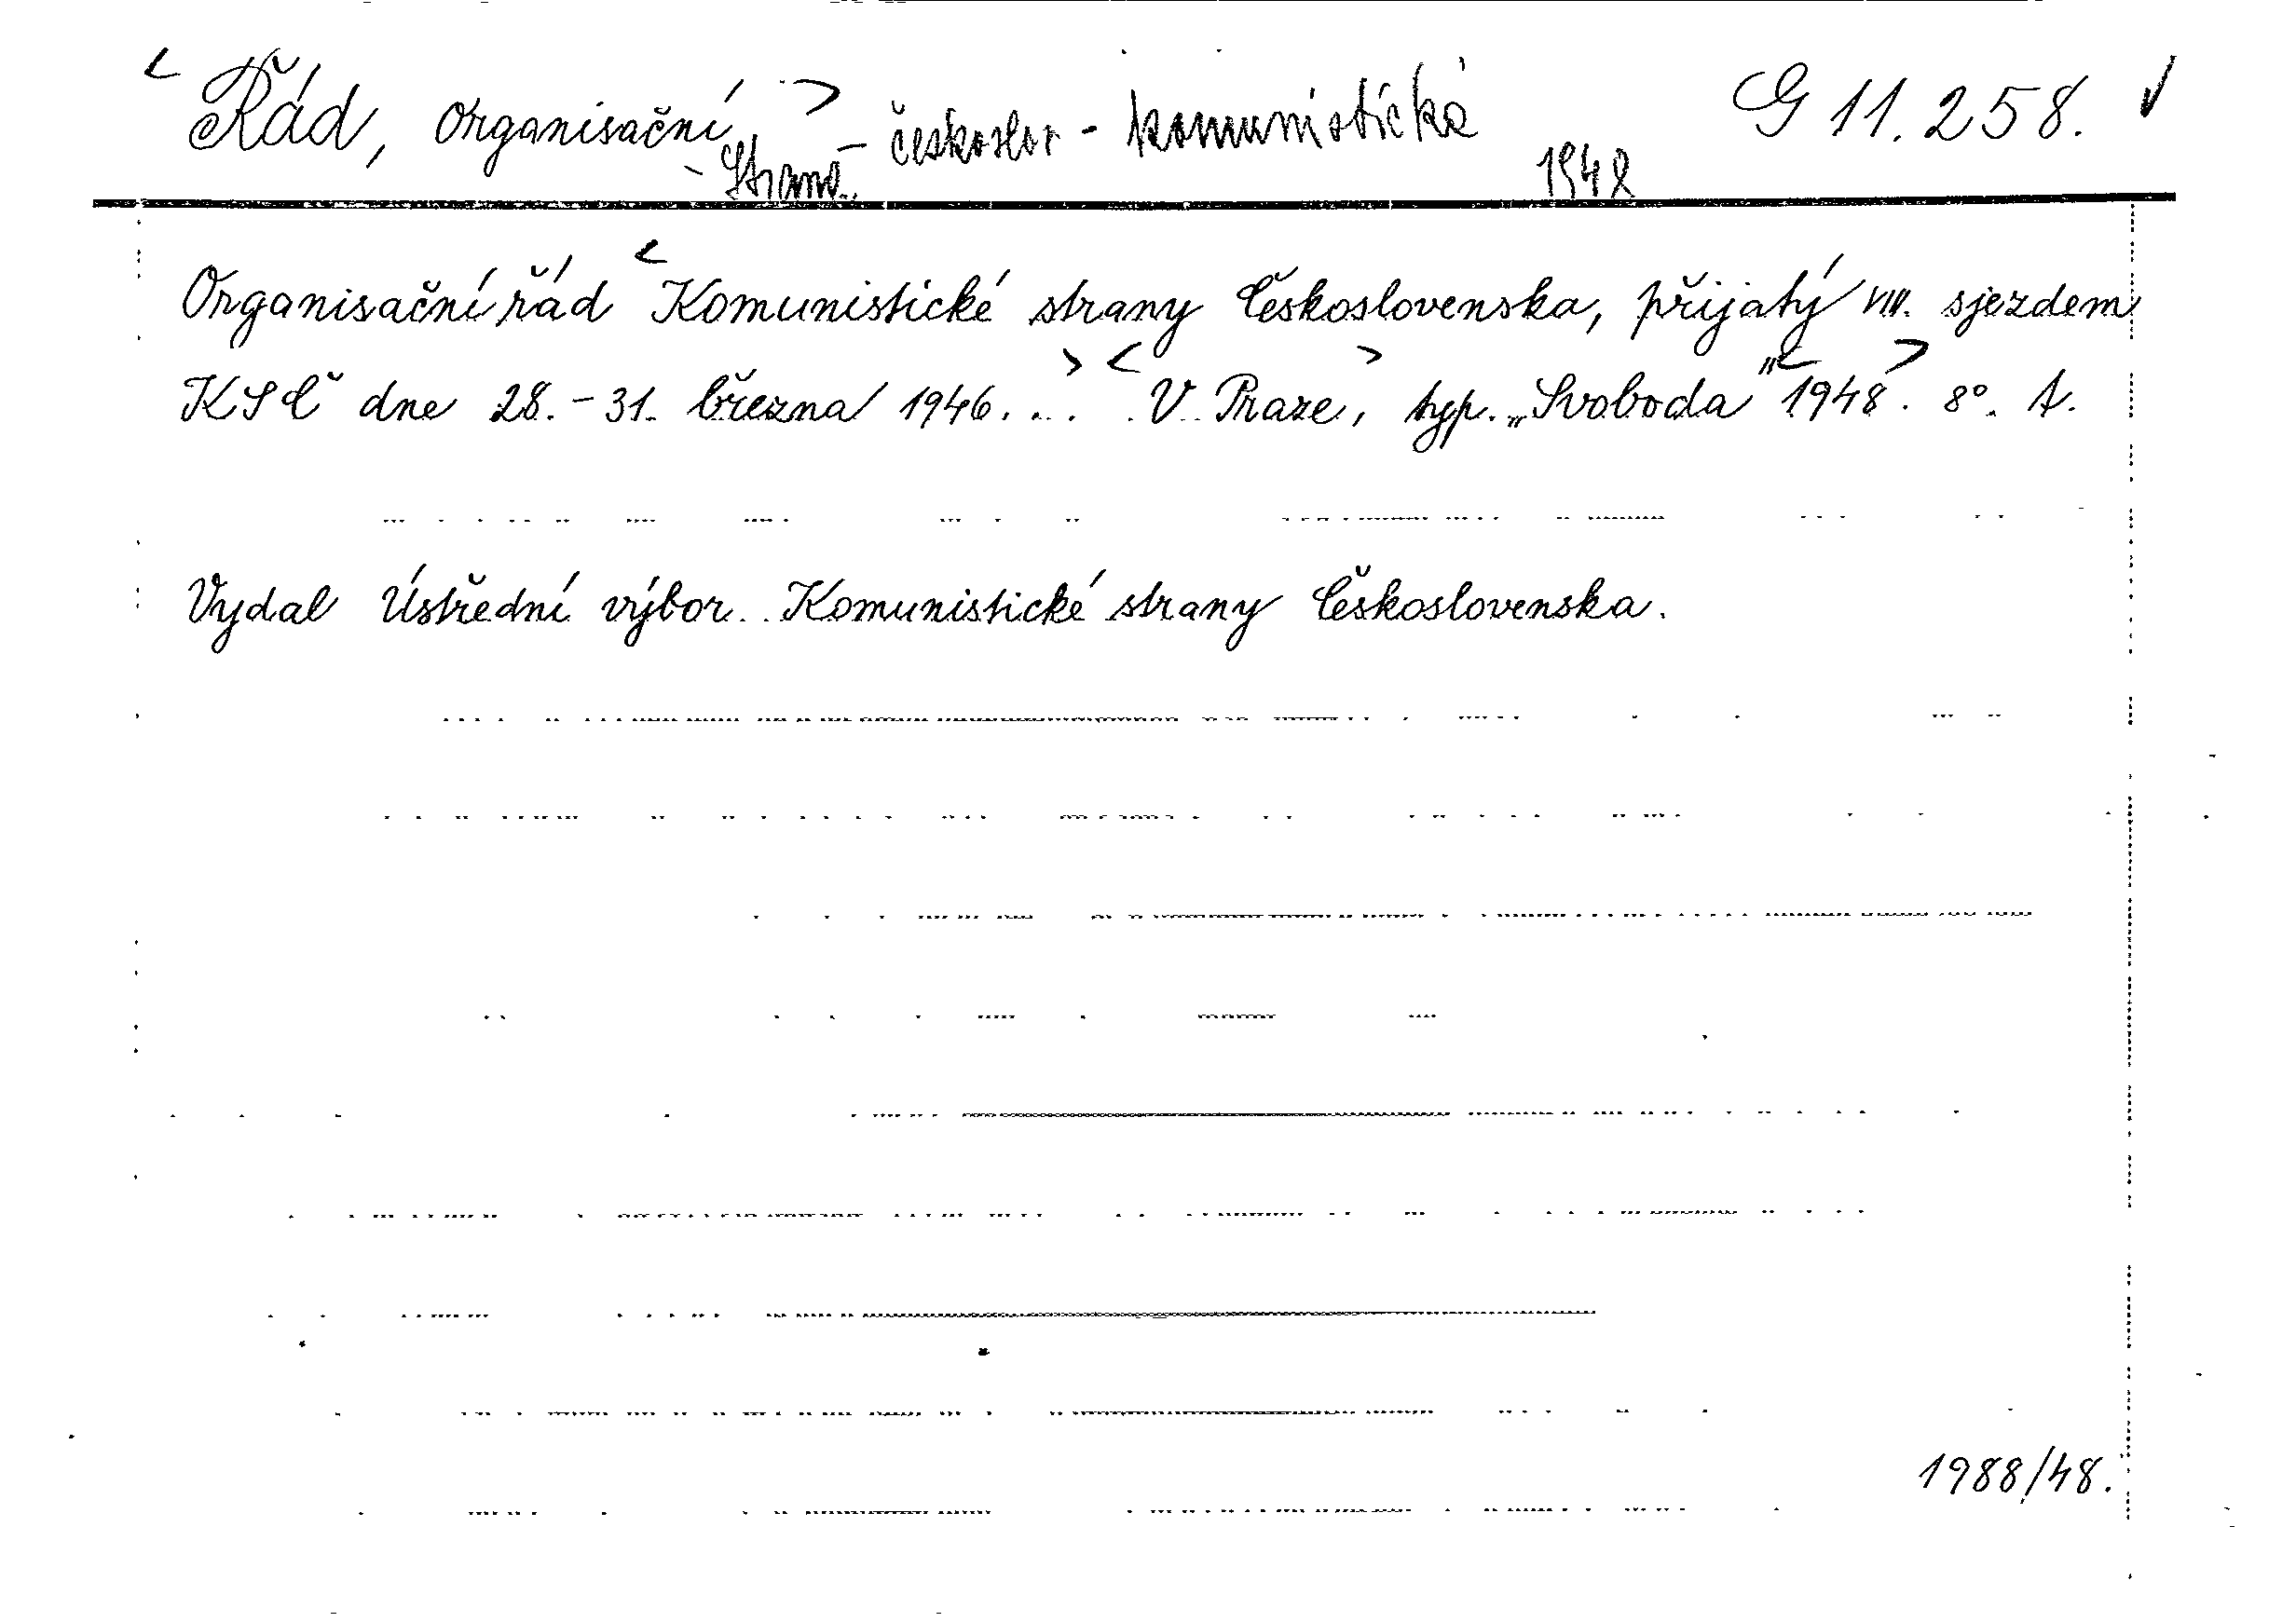 < Řád, organisační > - českoslov - komunistická G 11.258. ✓
- Strana 1948
Organisační řád < Komunistické strany Československa, přijatý VIII. sjezdem
KSČ dne 28.-31. března 1946. ... > < V Praze, > typ. „Svoboda" < 1948 >. 8°.
Vydal Ústřední výbor Komunistické strany Československa.
1988/48.